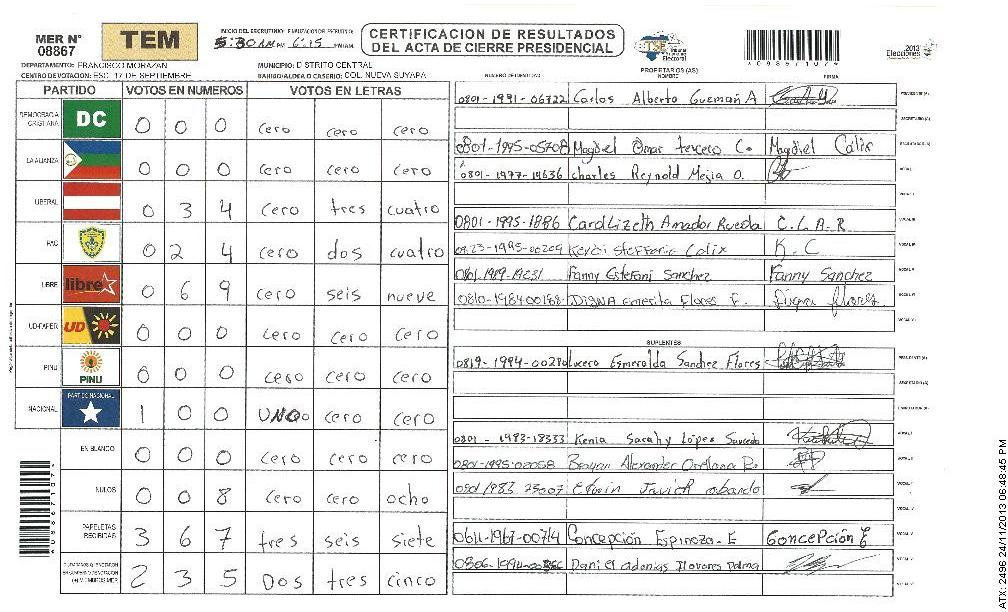 MER N° 08867
TEM
INICIO DEL ESCRUTINIO: 5:30 AM 6:15 PM/AM.
CERTIFICACION DE RESULTADOS
DEL ACTA DE CIERRE PRESIDENCIAL
TSE Tribunal Supremo Electoral
Elecciones 2013
DEPARTAMENTO: FRANCISCO MORAZAN
MUNICIPIO: DISTRITO CENTRAL
CENTRO DE VOTACION: ESC. 17 DE SEPTIEMBRE
BARRIO/ALDEA O CASERIO: COL. NUEVA SUYAPA
PROPIETARIOS (AS)
NOMBRE
FIRMA
PARTIDO VOTOS EN NUMEROS VOTOS EN LETRAS
DEMOCRACIA CRISTIANA DC 0 0 0 cero cero cero
LA ALIANZA 0 0 0 cero cero cero
LIBERAL 0 3 4 cero tres cuatro
PAC 0 2 4 cero dos cuatro
LIBRE libre 0 6 9 cero seis nueve
UD-FAPER UD 0 0 0 cero cero cero
PINU PINU 0 0 0 cero cero cero
NACIONAL PARTIDO NACIONAL 1 0 0 UNO cero cero
EN BLANCO 0 0 0 cero cero cero
NULOS 0 0 8 cero cero ocho
PAPELETAS RECIBIDAS 3 6 7 tres seis siete
2 3 5 Dos tres cinco
0801-1991-06722 Carlos Alberto Guzmán A
0801-1995-05708 Magdiel Omar tercero C. Magdiel Cálix
0801-1977-14636 charles Reynold Mejia O.
0801-1995-1886 Carol Lizeth Amador Rueda C.L.A.R.
Keydi Steffanie Calix K.C
Fanny Estefani Sanchez Fanny Sanchez
DIGNA emerita Flores F.
SUPLENTES
0819-1994-00280 Lucero Esmeralda Sandez Flores
0801-1983-18333 Kenia Sarahy López Saucedo
0801-1995-02058 Brayan Alexander Orellana R.
0801 1983 23007 Edwin Javier obando
0611-1967-00714 Concepción Espinoza-E Concepción E
Daniel adonias
ATX: 2496 24/11/2013 06:48:45 PM